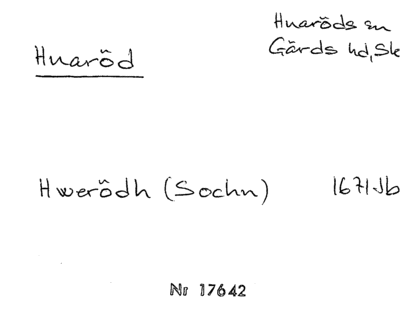 Huaröd
Huaröds sn
Gärds hd, Sk
Hwerödh (Sochn) 1671 Jb
Nr 17642